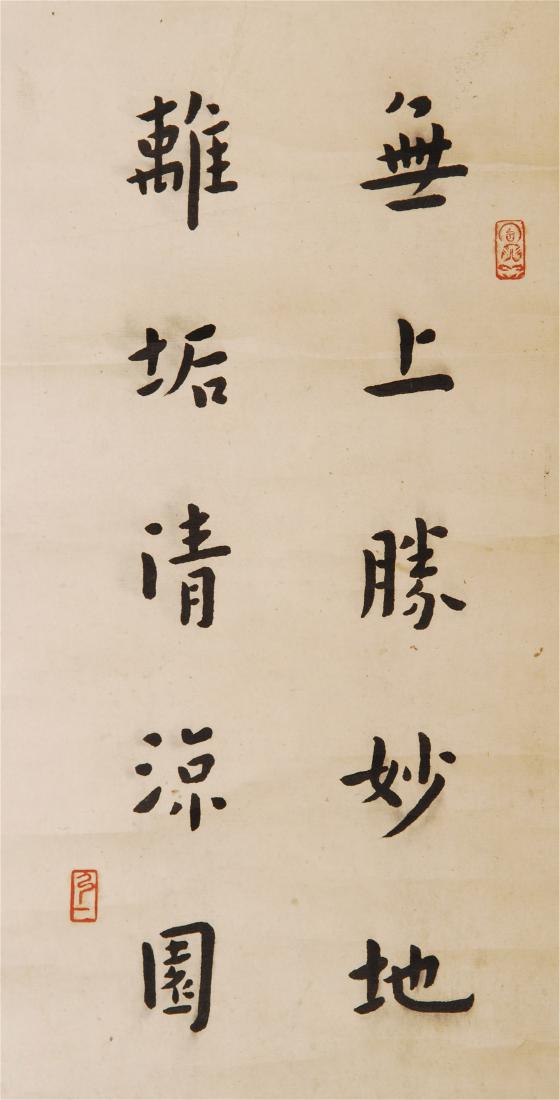 無上勝妙地
離垢清涼園